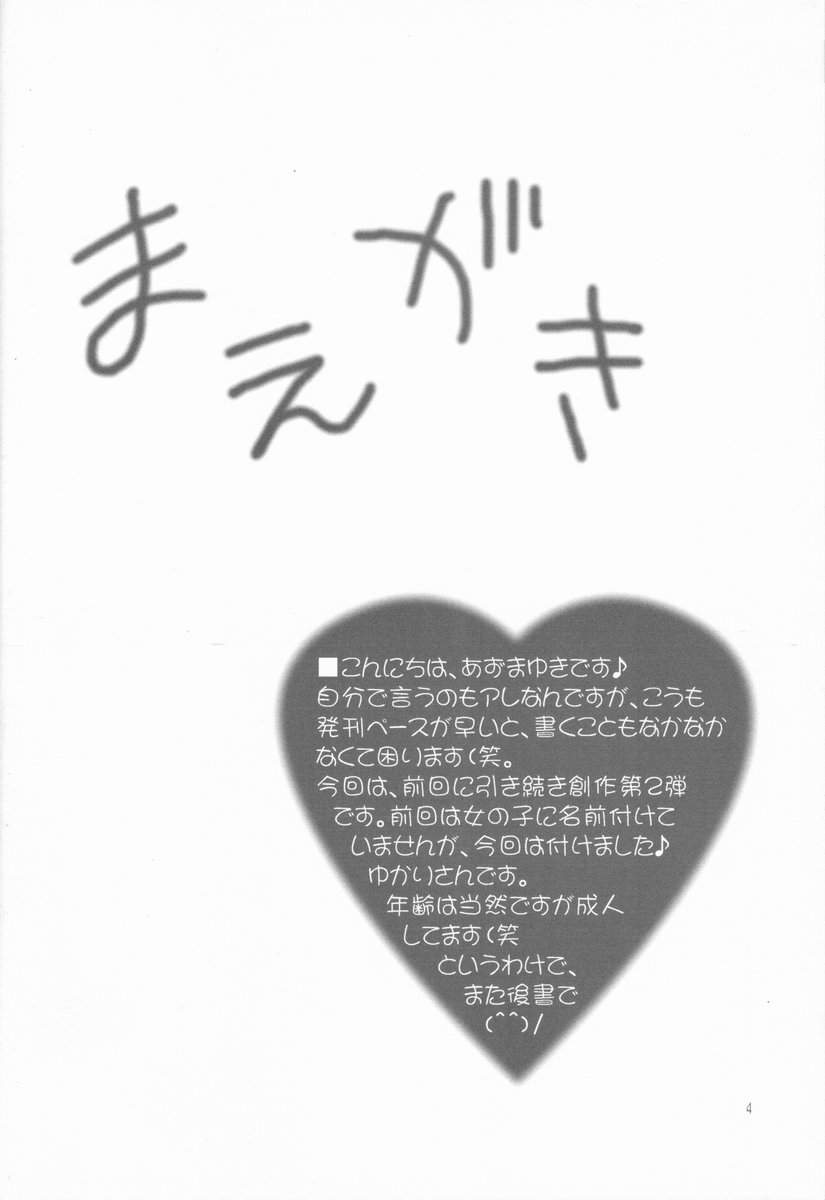 まえがき
■こんにちは、あおまゆきです♪
自分で言うのもアレなんですが、こうも
発刊ペースが早いと、書くこともなかなか
なくて困ります(笑。
今回は、前回に引き続き創作第2弾
です。前回は女の子に名前付けて
いませんが、今回は付けました♪
ゆかりさんです。
年齢は当然ですが成人
してます(笑
というわけで、
また後書で
(^^)/
4